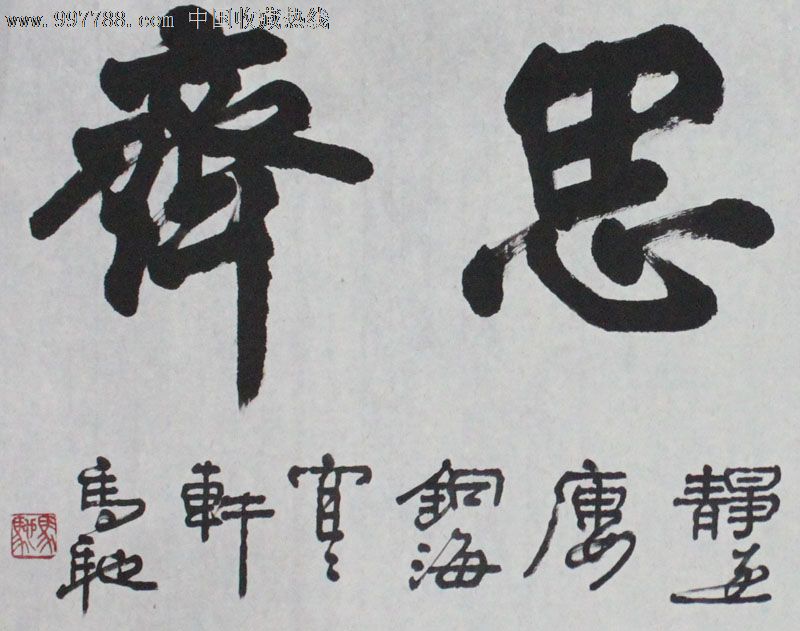 www.997788.com 中国收藏热线
思齊
靜
銅海
軒
馬馳
馬馳